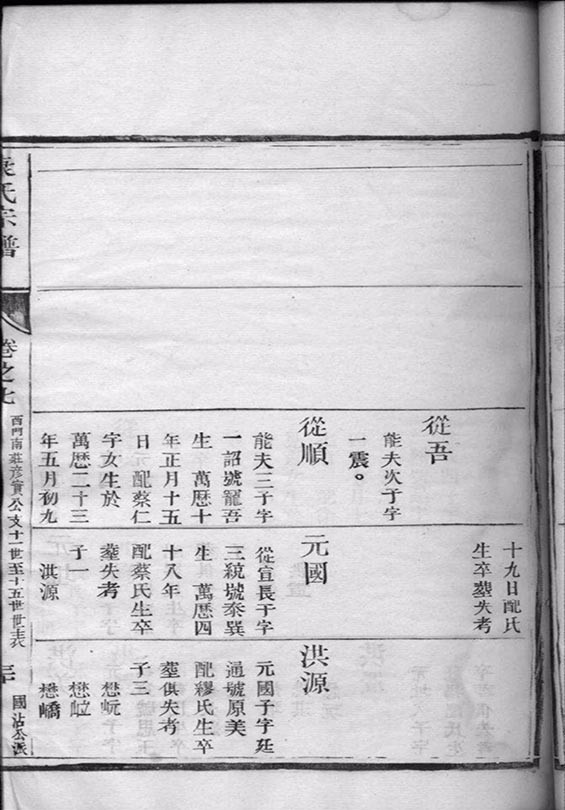 從吾
能夫次子字
一震。
從順
能夫三子字
一詔號寵吾
生 萬曆十
年正月十五
日元 配蔡仁
字女生於
萬曆二十三
年五月初九
十九日配氏
生卒塟失考
元國
從宣長子字
三統號泰巽
生 萬曆四
十八年
配蔡氏生卒
塟失考
子一
洪源
洪源
元國子字廷
通號原美
配繆氏生卒
塟俱失考
子三
懋岏
懋岦
懋嶠
氏宗譜
卷之七
西門南莊彥實公支十一世至十五世世表
國沾公派